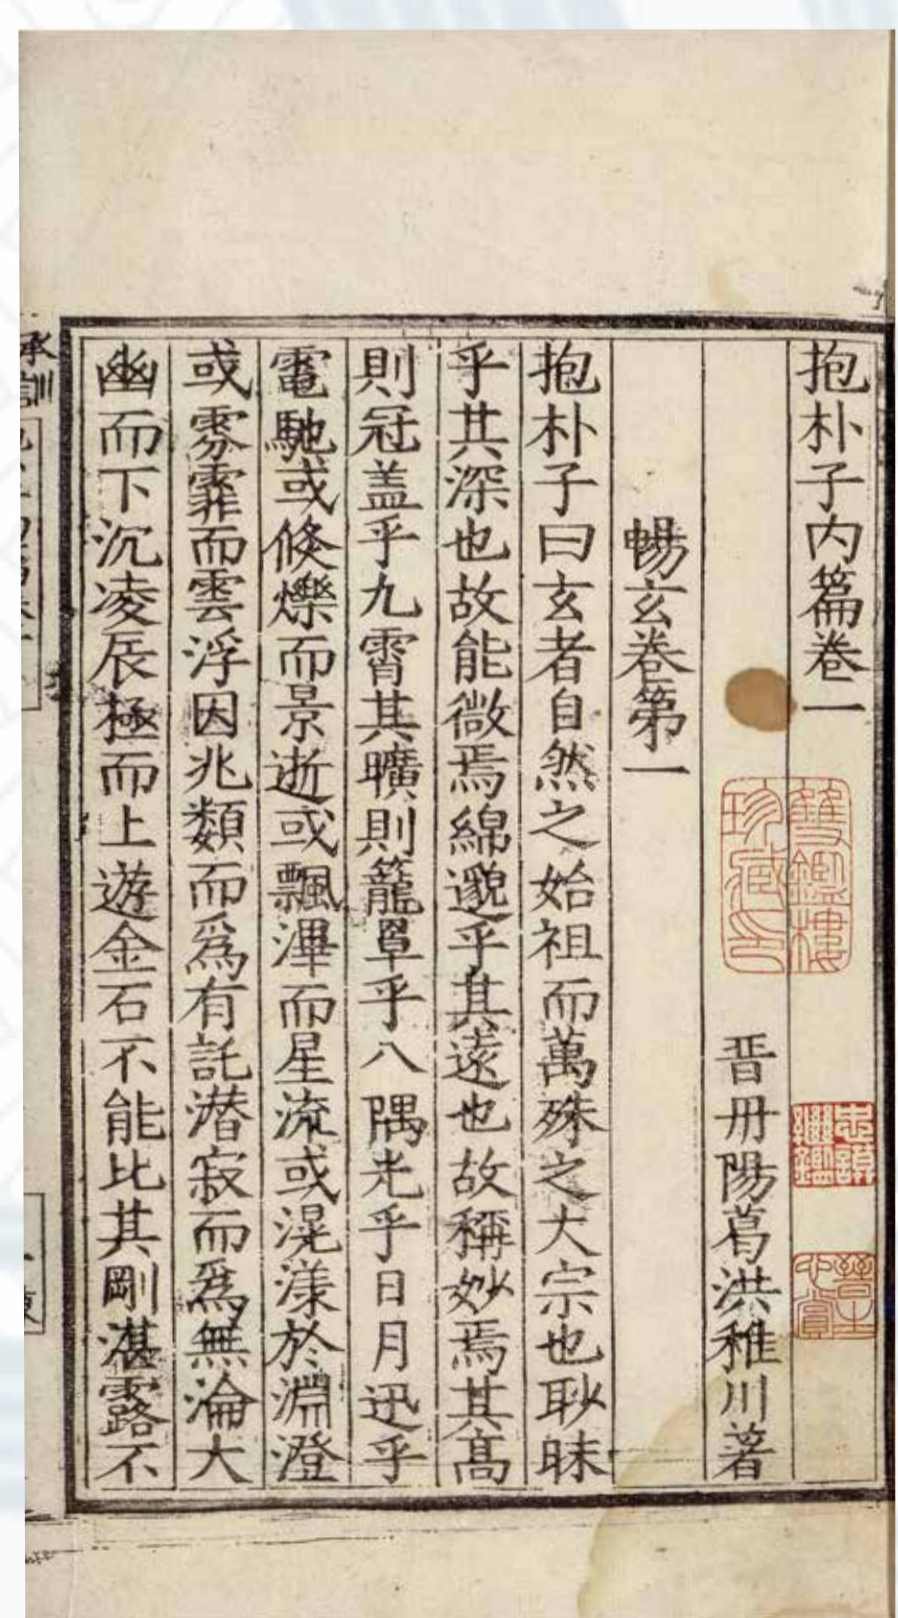 抱朴子内篇卷一
晋丹陽葛洪稚川著
暢玄卷第一
抱朴子曰玄者自然之始祖而萬殊之大宗也眇昧
乎其深也故能微焉綿邈乎其遠也故稱妙焉其高
則冠盖乎九霄其曠則籠罩乎八隅光乎日月迅乎
電馳或倏爍而景逝或飄滭而星流或滉漾於淵澄
或雰霏而雲浮因兆類而爲有託潜寂而爲無淪大
幽而下沉凌辰極而上遊金石不能比其剛湛露不
雙鑑樓
珍藏印
忠謨
繼鑑